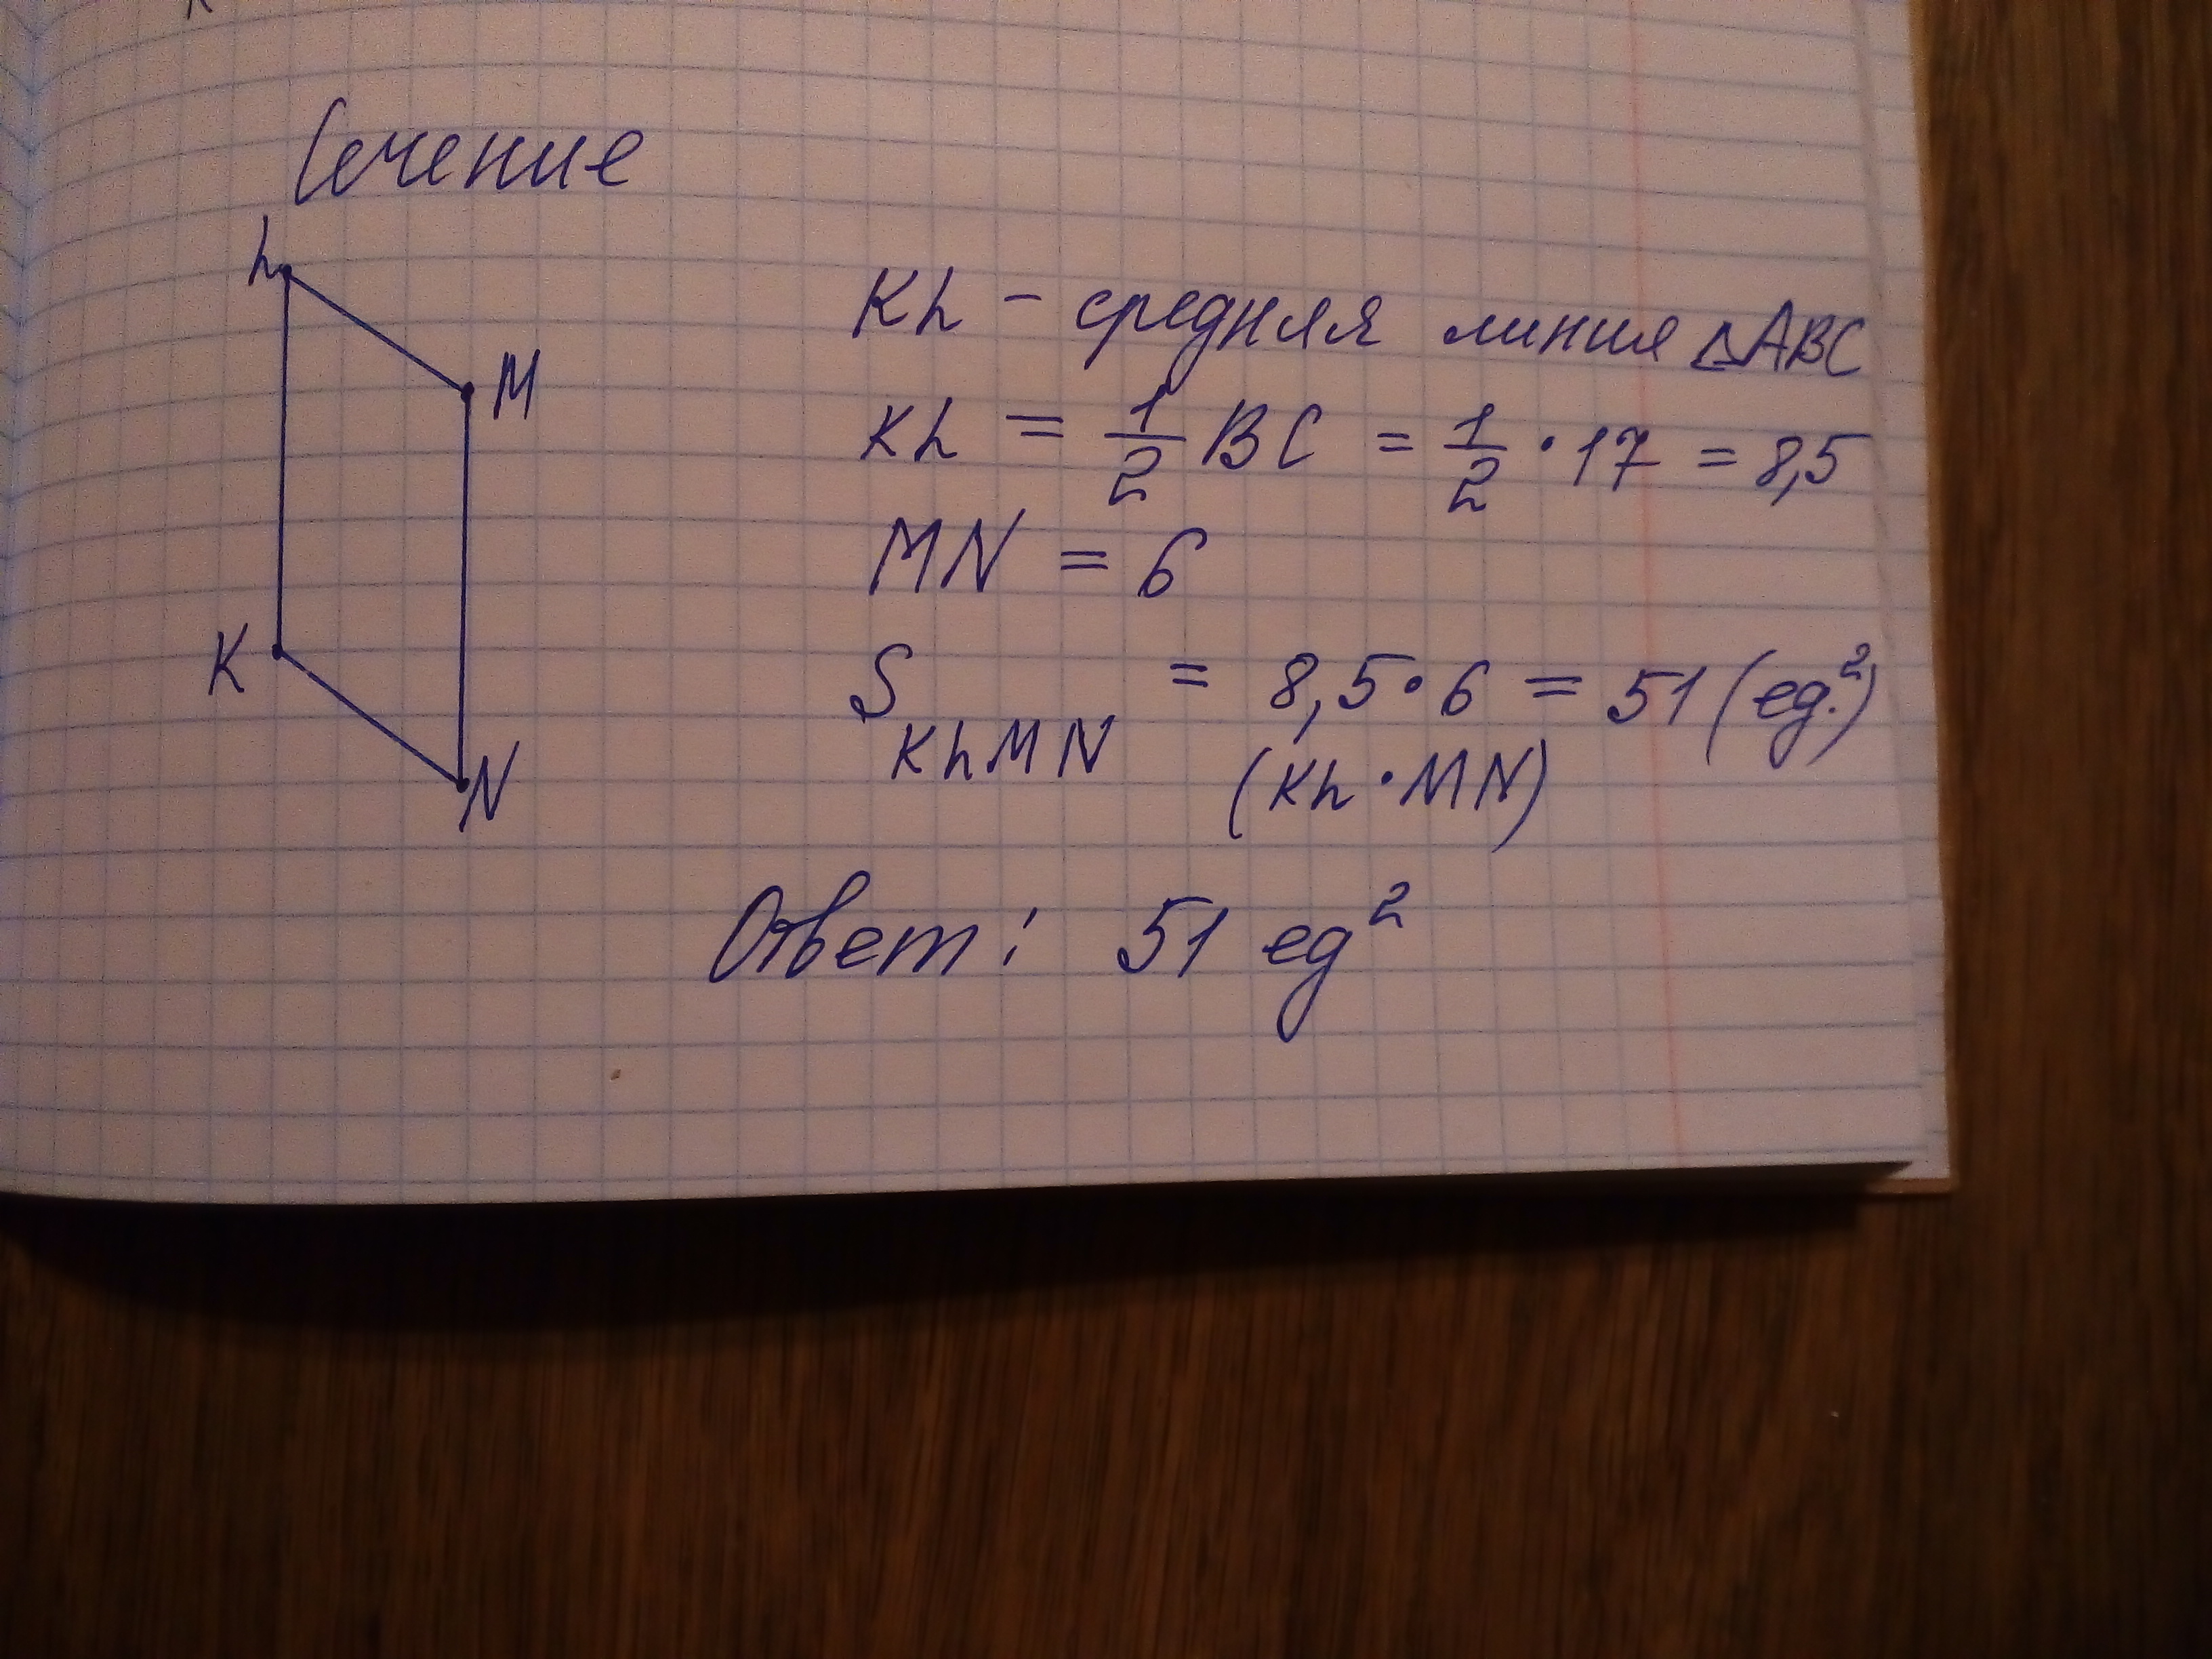 Сечение
L
M
K
N
KL - средняя линия △ABC
KL = 1/2 BC = 1/2 · 17 = 8,5
MN = 6
S KLMN = 8,5 · 6 = 51 (ед.²)
(KL · MN)
Ответ: 51 ед²